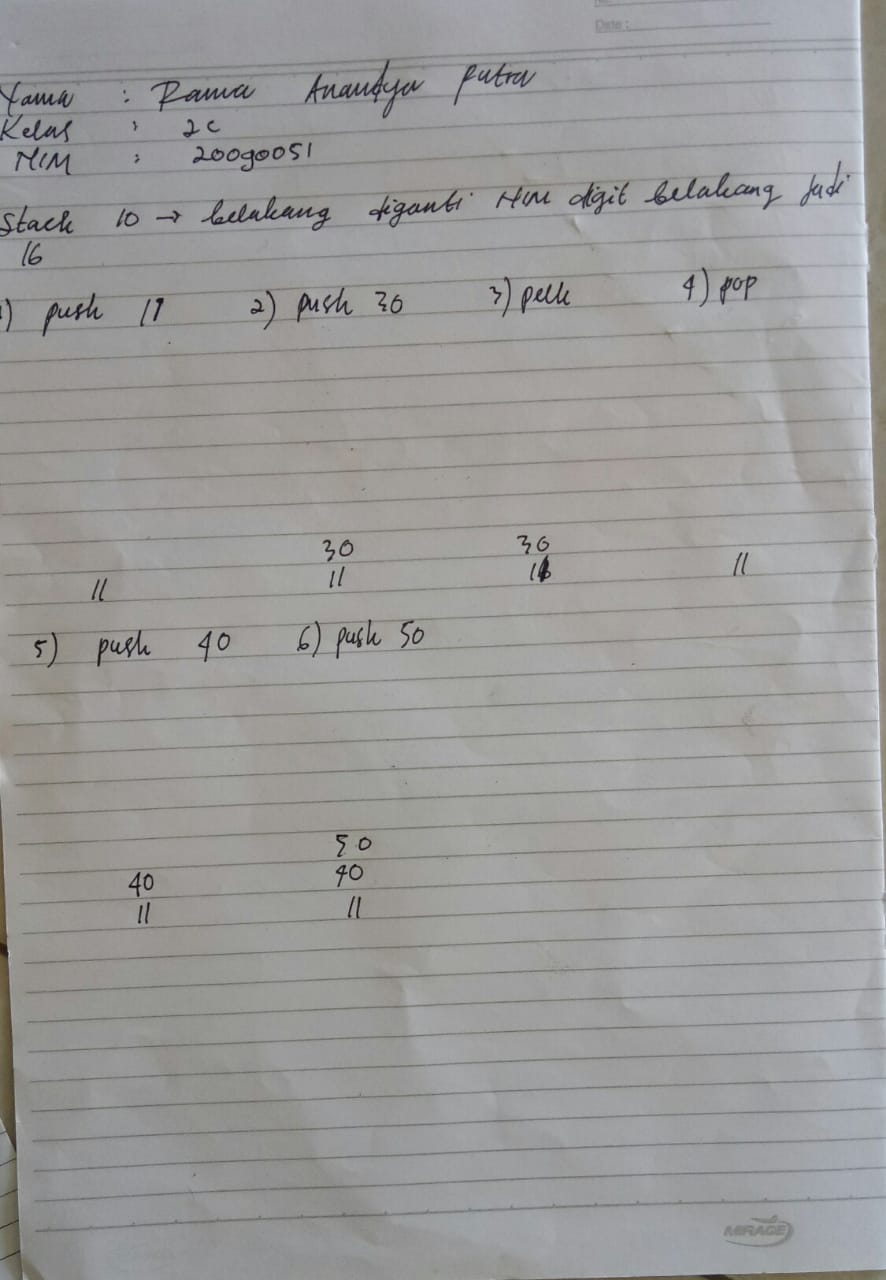 Date :
Nama : Rama Anandya Putra
Kelas : 2C
NIM : 20090051
Stack 10 → belakang diganti NIM digit belakang Jadi
16
1) push 11 2) push 30 3) peek 4) pop
30 30
11 11 11 11
5) push 40 6) push 50
50
40 40
11 11
MIRAGE